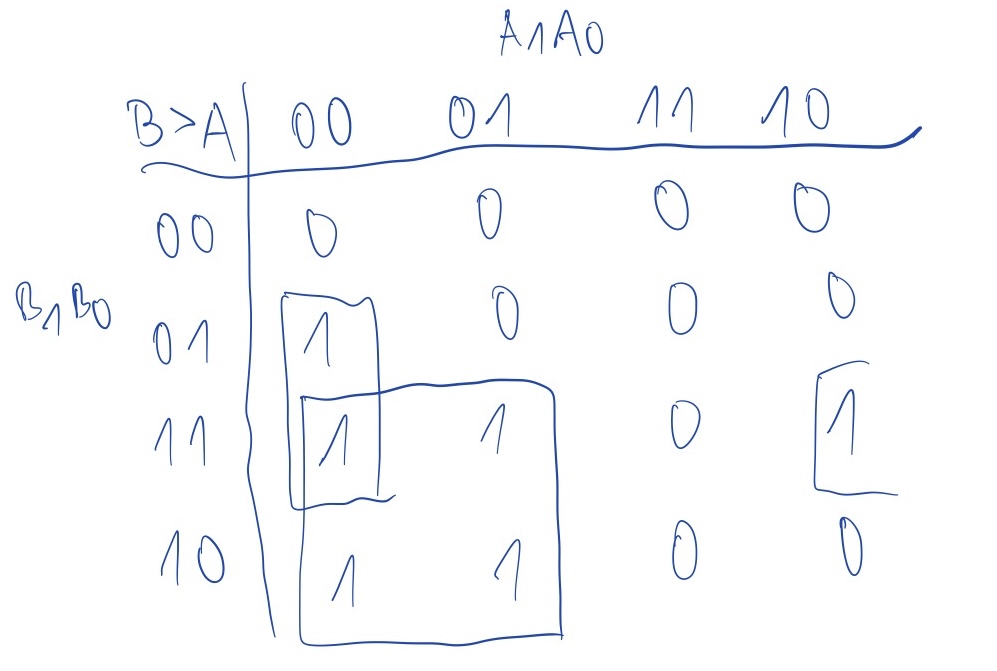 A1A0
B>A 00 01 11 10
00 0 0 0 0
B1B0
01 1 0 0 0
11 1 1 0 1
10 1 1 0 0